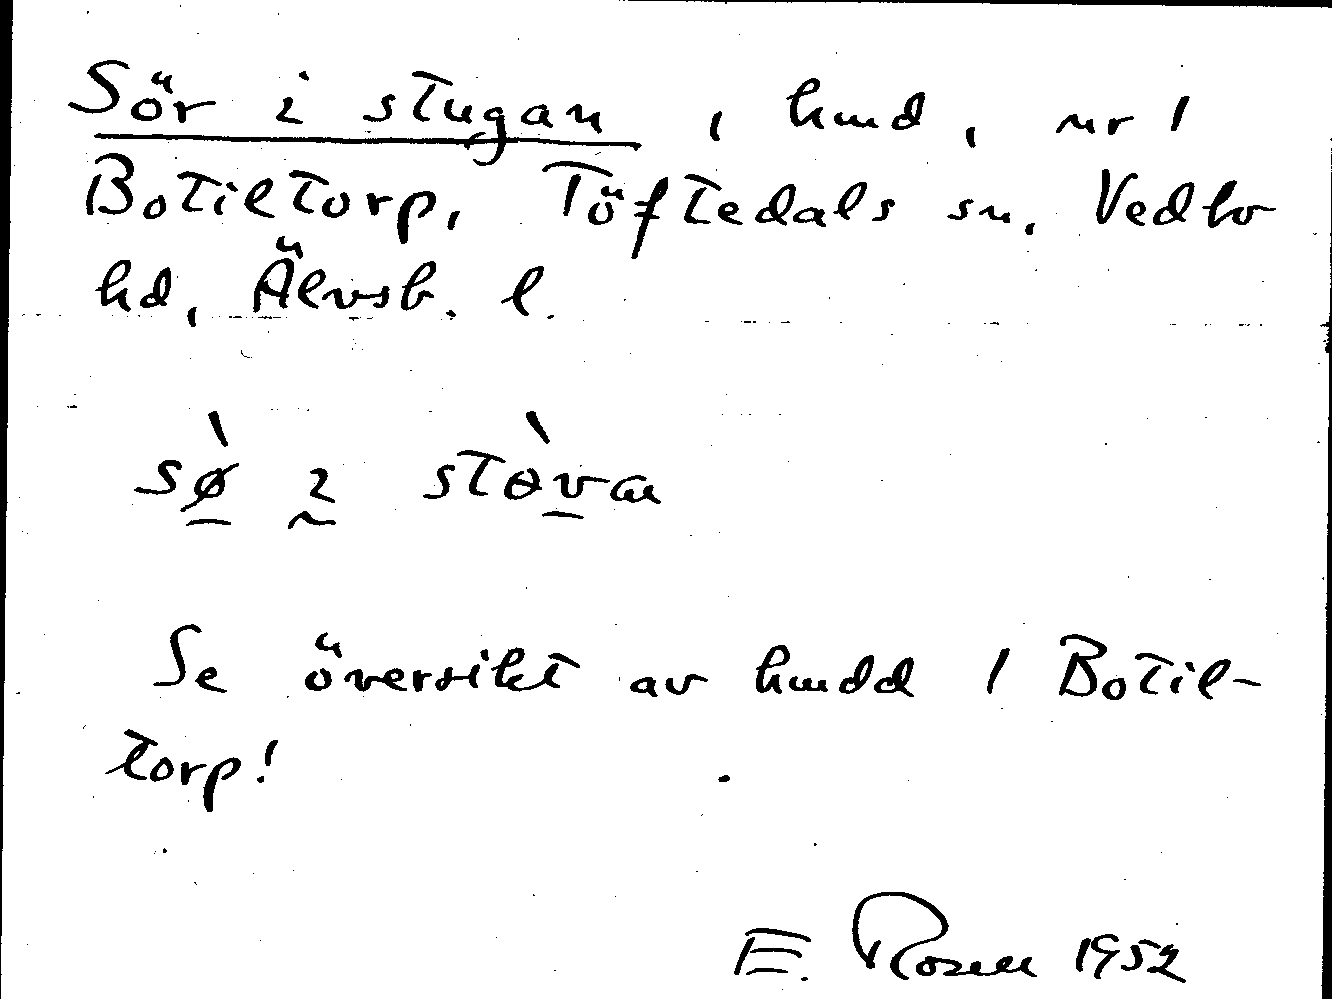 Sör i stugan, hmd, nr 1
Botiltorp, Töftedals sn, Vedbo
hd, Älvsb. l.
sø̀ ı stɵ̀va
Se översikt av hmdd 1 Botil-
torp!
E. Rosell 1952